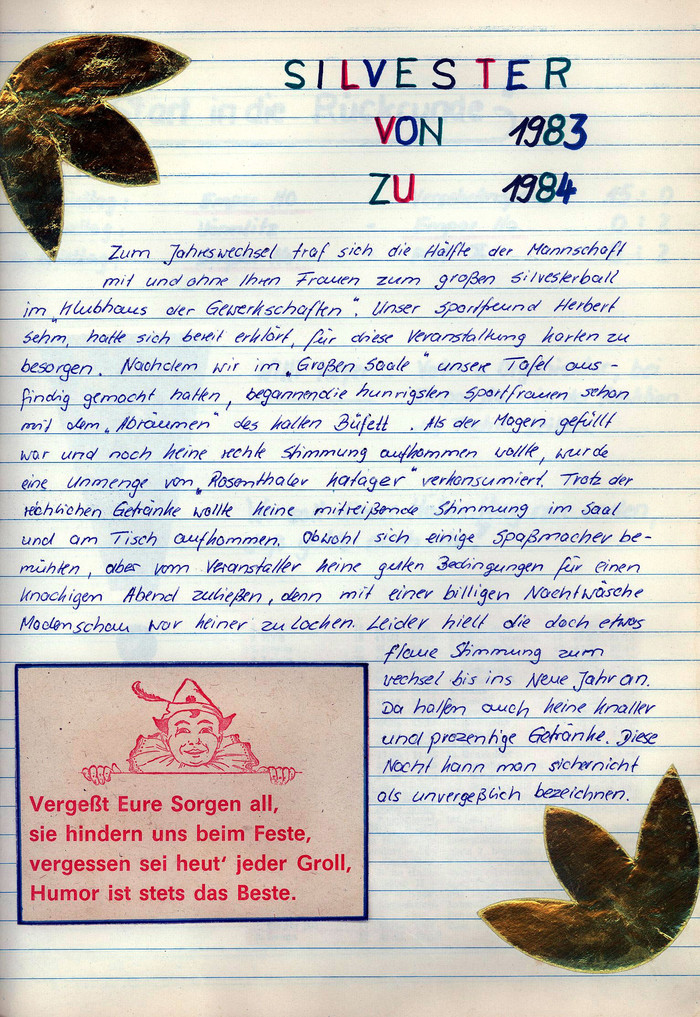 SILVESTER
VON 1983
ZU 1984
Zum Jahreswechsel traf sich die Hälfte der Mannschaft
mit und ohne Ihren Frauen zum großen Silvesterball
im "Klubhaus der Gewerkschaften". Unser Sportfreund Herbert
Sehm, hatte sich bereit erklärt, für diese Veranstaltung Karten zu
besorgen. Nachdem wir im "Großen Saale" unsere Tafel aus-
findig gemacht hatten, begannen die hunrigsten Sportfrauen schon
mit dem "Abräumen" des kalten Büfett. Als der Magen gefüllt
war und noch keine rechte Stimmung aufkommen wollte, wurde
eine Unmenge von "Rosenthaler Kadager" verkonsumiert. Trotz der
rechlichen Getränke wollte keine mitreißende Stimmung im Saal
und am Tisch aufkommen. Obwohl sich einige Spaßmacher be-
mühten, aber vom Veranstalter keine guten Bedingungen für einen
knackigen Abend zuließen, denn mit einer billigen Nachtwäsche
Modenschau war keiner zu locken. Leider hielt die doch etwas
flaue Stimmung zum
wechsel bis ins Neue Jahr an.
Da halfen auch keine Knaller
und prozentige Getränke. Diese
Nacht kann man sicher nicht
als unvergeßlich bezeichnen.
Vergeßt Eure Sorgen all,
sie hindern uns beim Feste,
vergessen sei heut' jeder Groll,
Humor ist stets das Beste.